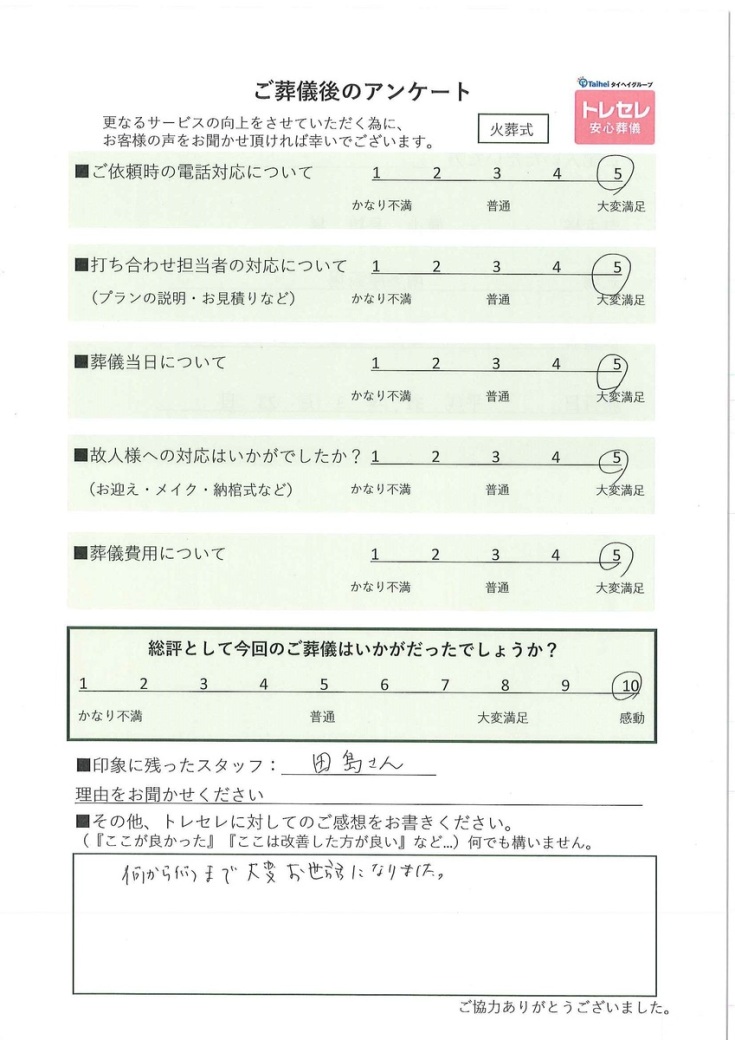 ご葬儀後のアンケート
Taihei タイヘイグループ
トレセレ
安心葬儀
更なるサービスの向上をさせていただく為に、
お客様の声をお聞かせ頂ければ幸いでございます。
火葬式
■ご依頼時の電話対応について 1 2 3 4 5
かなり不満 普通 大変満足
■打ち合わせ担当者の対応について 1 2 3 4 5
（プランの説明・お見積りなど） かなり不満 普通 大変満足
■葬儀当日について 1 2 3 4 5
かなり不満 普通 大変満足
■故人様への対応はいかがでしたか？ 1 2 3 4 5
（お迎え・メイク・納棺式など） かなり不満 普通 大変満足
■葬儀費用について 1 2 3 4 5
かなり不満 普通 大変満足
総評として今回のご葬儀はいかがだったでしょうか？
1 2 3 4 5 6 7 8 9 10
かなり不満 普通 大変満足 感動
■印象に残ったスタッフ： 田島さん
理由をお聞かせください
■その他、トレセレに対してのご感想をお書きください。
（『ここが良かった』『ここは改善した方が良い』など…）何でも構いません。
何から何まで大変お世話になりました。
ご協力ありがとうございました。